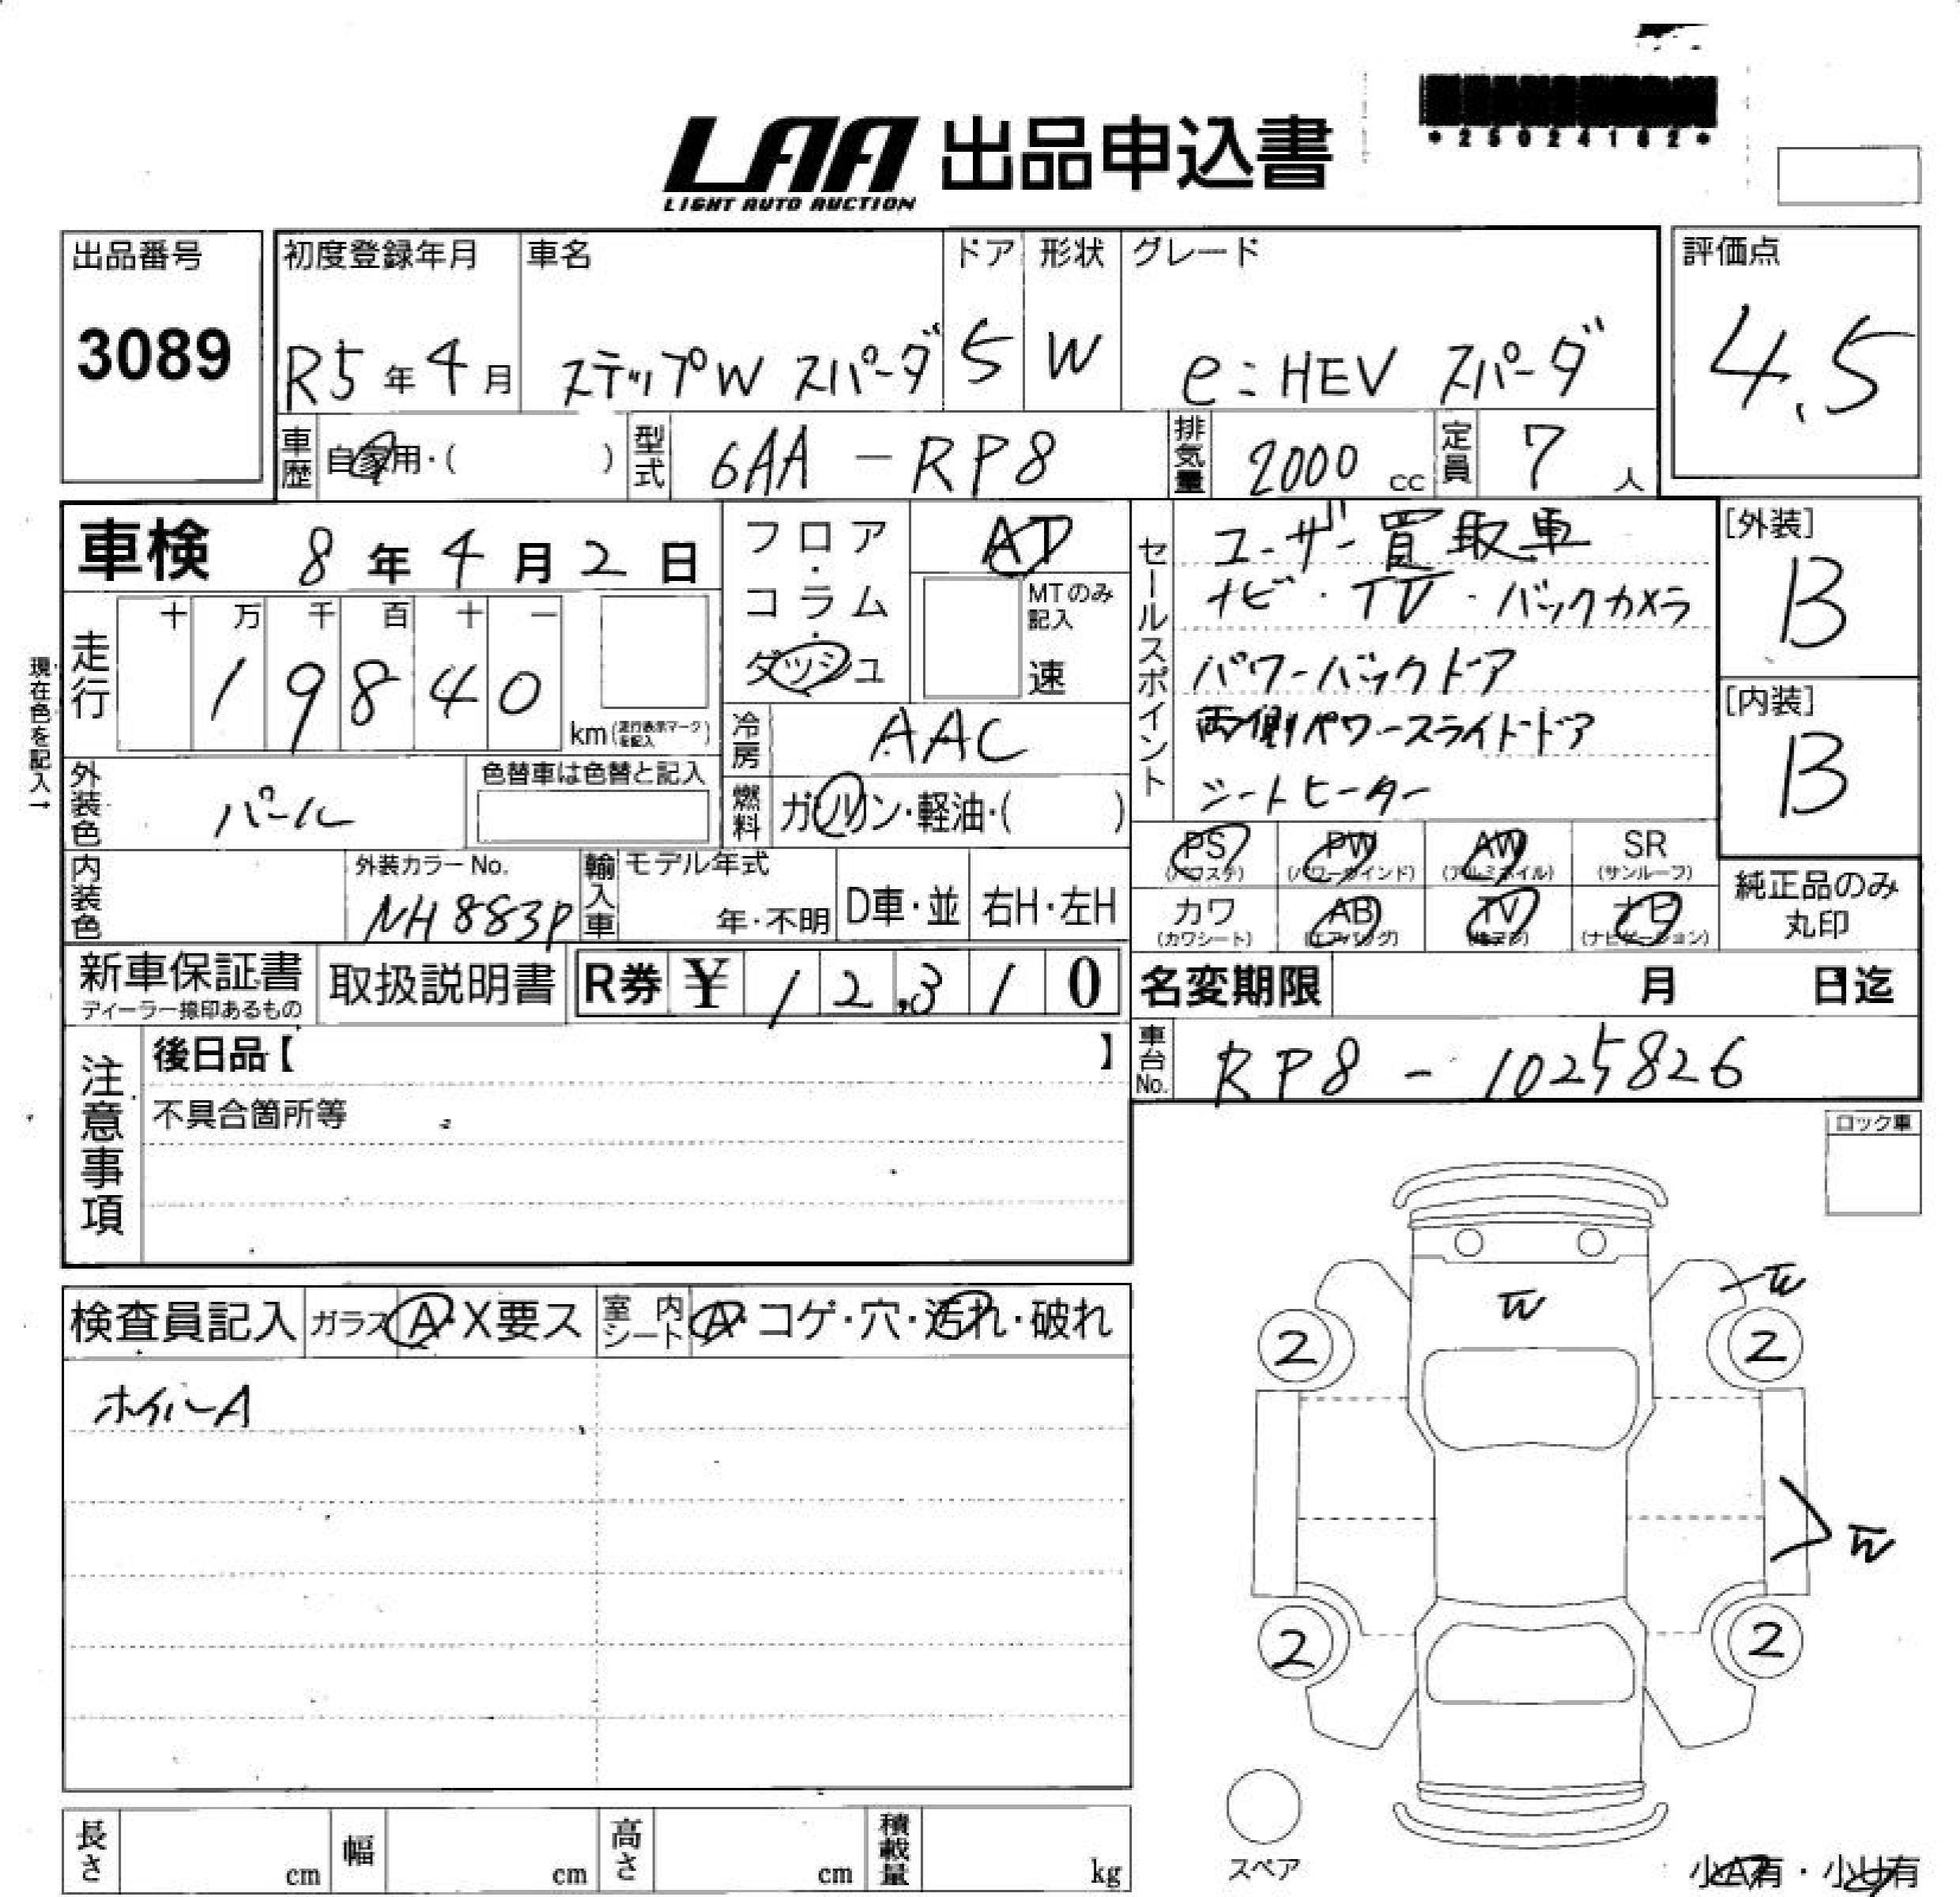 *25024182*
LAA 出品申込書
LIGHT AUTO AUCTION
出品番号
3089
初度登録年月
R5年4月
車名
ステップW スパーダ
ドア
5
形状
W
グレード
e:HEV スパーダ
評価点
4.5
車歴
自家用・( )
型式
6AA-RP8
排気量
2000cc
定員
7人
車検 8年4月2日
フロア・コラム・ダッシュ
AT
MTのみ記入
速
セールスポイント
ユーザー買取車
ナビ・TV・バックカメラ
パワーバックドア
両側パワースライドドア
シートヒーター
[外装]
B
[内装]
B
現在色を記入→
走行
十 万 千 百 十 一
19840
km(走行表示マークを記入)
冷房
AAC
外装色
パール
色替車は色替と記入
燃料
ガソリン・軽油・( )
PS
(パワステ)
PW
(パワーウインド)
AW
(アルミホイル)
SR
(サンルーフ)
内装色
外装カラーNo.
NH883P
輸入車
モデル年式
年・不明
D車・並
右H・左H
カワ
(カワシート)
AB
(エアバッグ)
TV
ナビ
(ナビゲーション)
純正品のみ
丸印
新車保証書
ディーラー捺印あるもの
取扱説明書
R券 ¥12,310
名変期限 月 日迄
車台No.
RP8-1025826
注意事項
後日品【 】
不具合箇所等
ロック車
検査員記入
ガラス A・X要ス
室内シート A・コゲ・穴・汚れ・破れ
ホイルA
2
2
2
2
スペア
長さ cm
幅 cm
高さ cm
積載量 kg
小A有・小U有